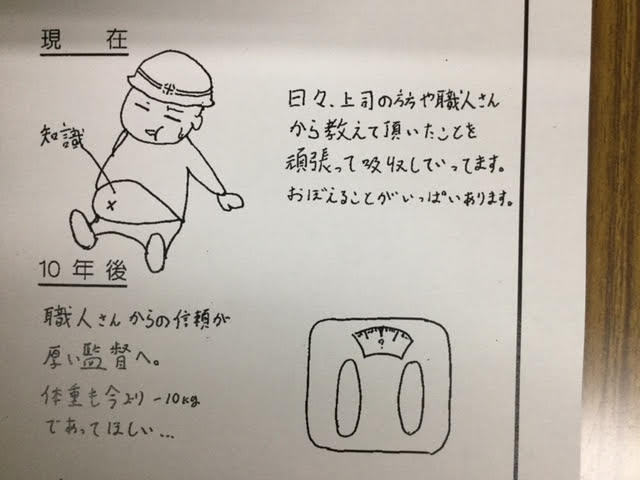 現在
知識
日々、上司の方や職人さん
から教えて頂いたことを
頑張って吸収していってます。
おぼえることがいっぱいあります。
10年後
職人さんからの信頼が
厚い監督へ。
体重も今より-10kg
であってほしい…
?